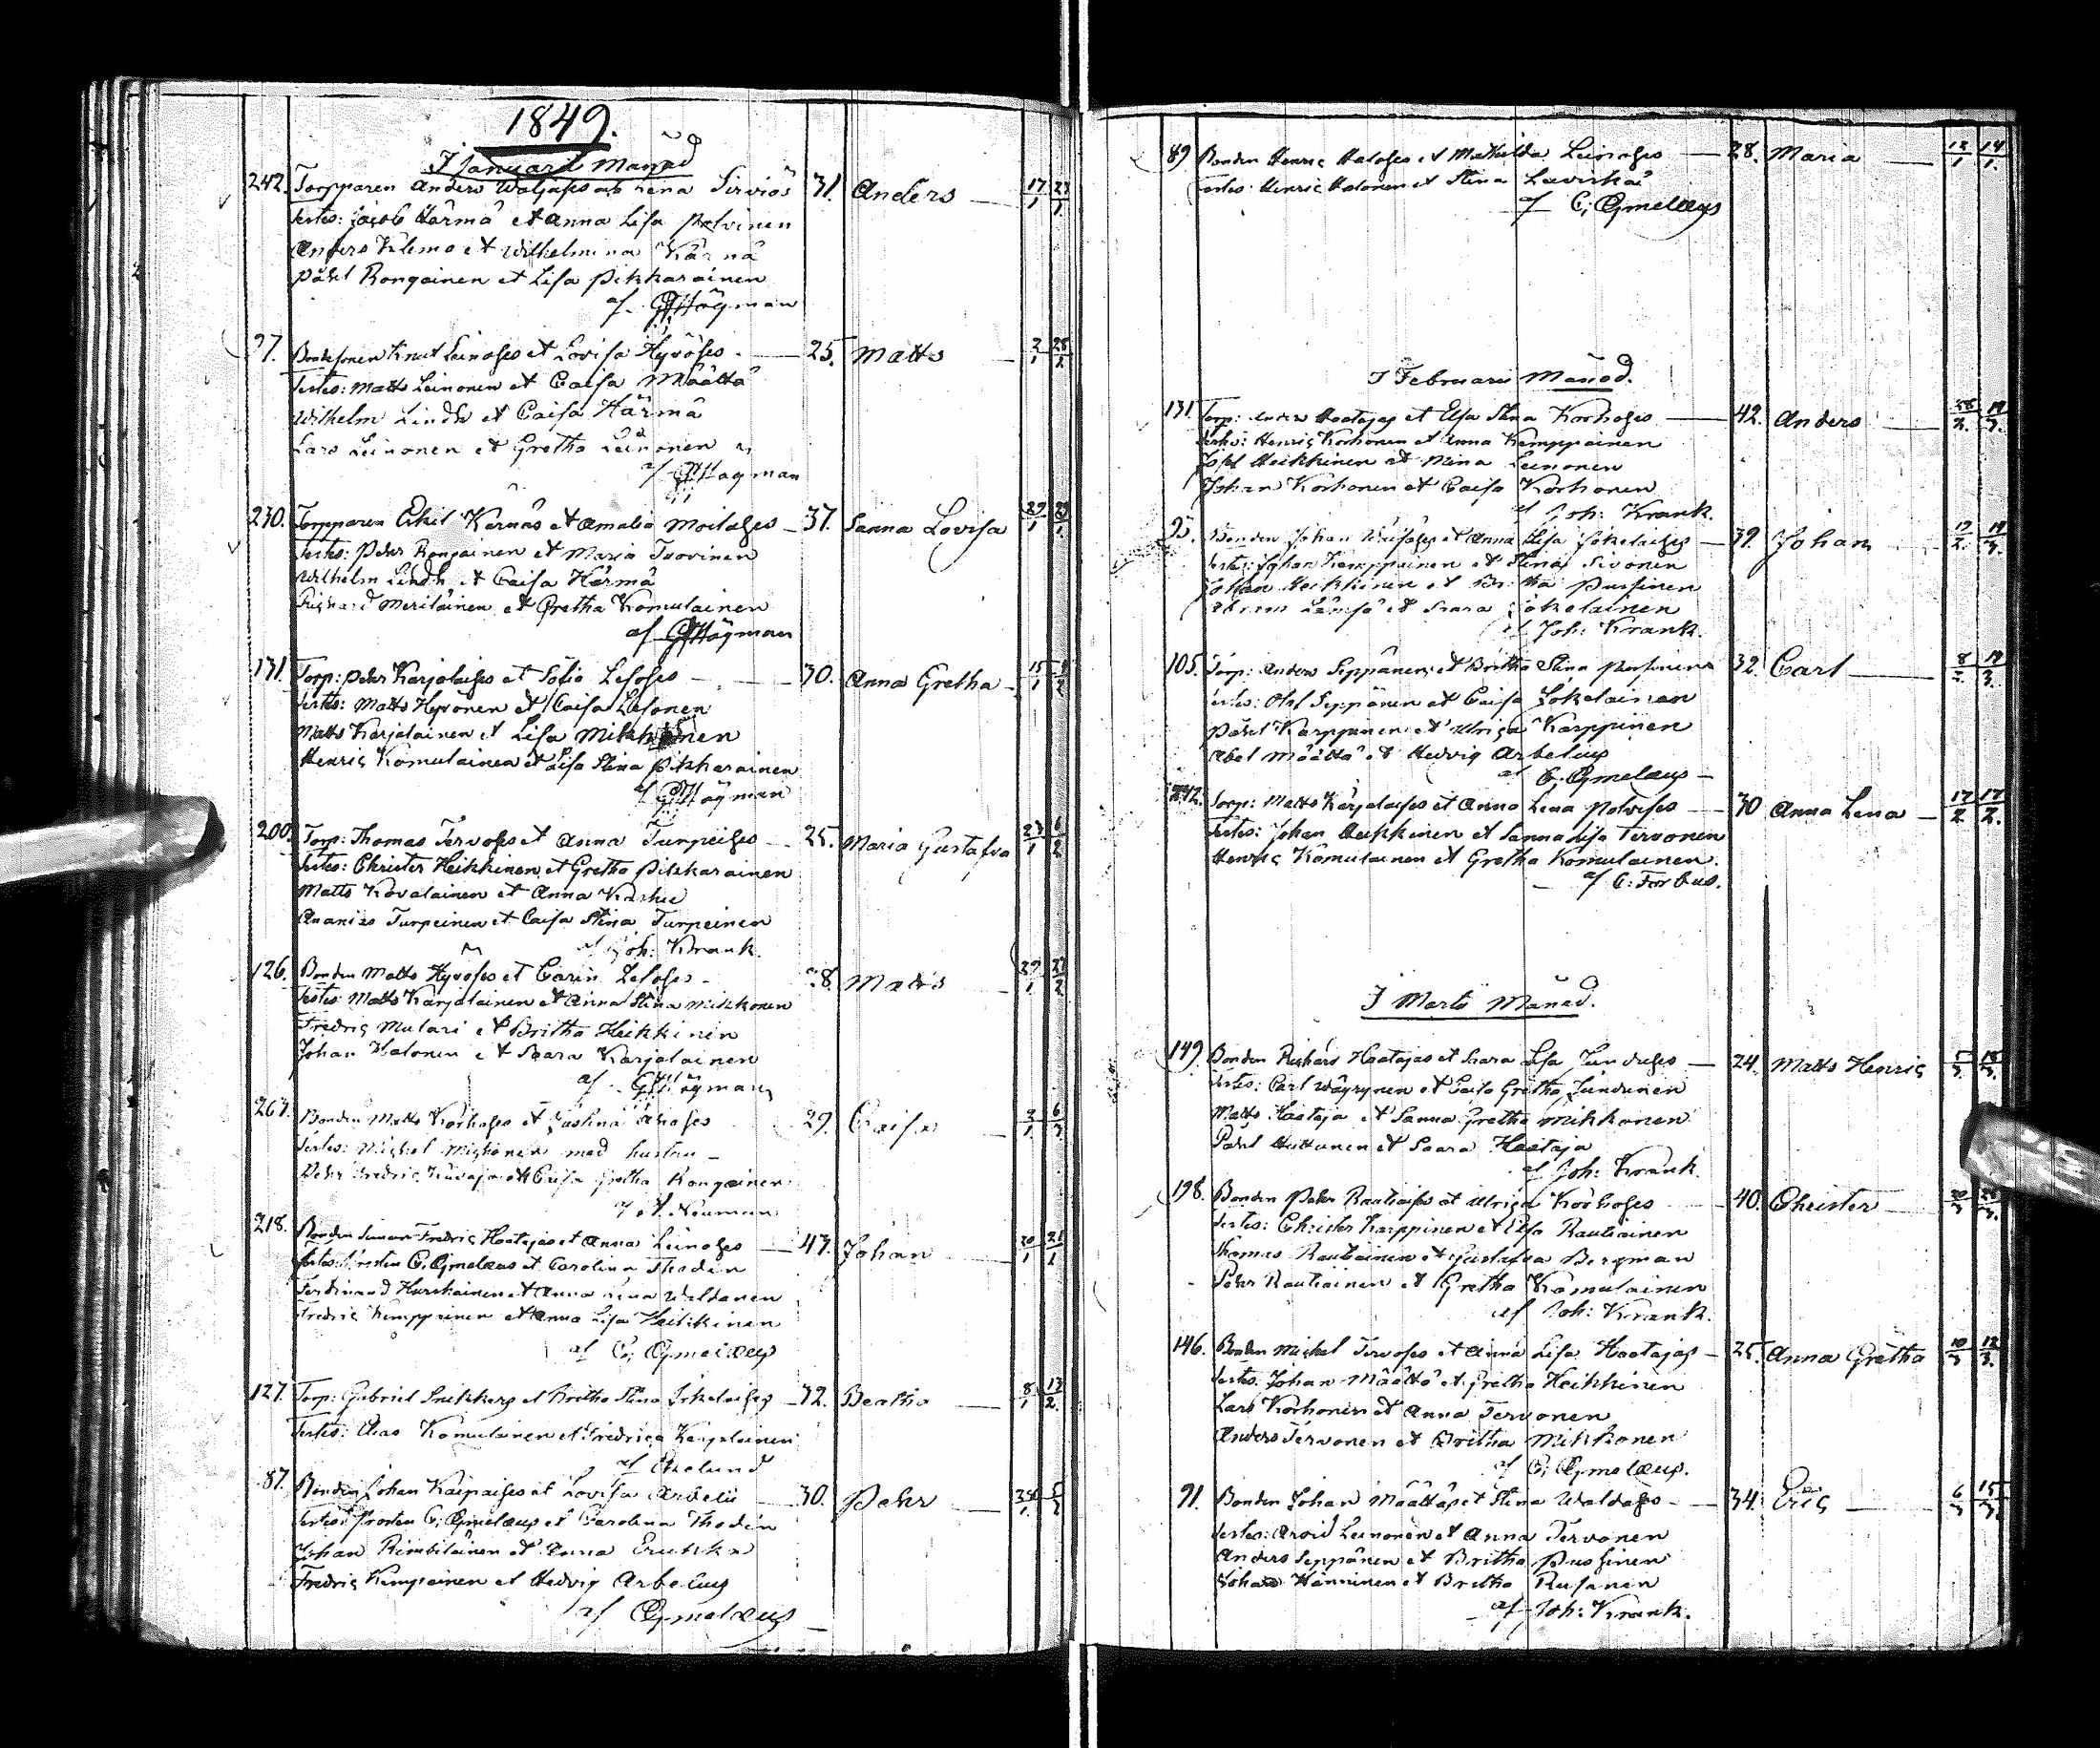 1849.
I Januarii Månad
242. Torpparen Anders Waljases ab Lena Sirviös 31. Anders 17/1 23/1
Testes: Jacob Härmä et Anna Lisa Polvinen
Anders Klemo et Wilhelmina Kärnä
Påhl Rongainen et Lisa Pikkarainen
af Högman
97. Bondesonen Knut Leinoses et Lovisa Hyvöses 25. Matts 2/1 28/1
Testes: Matts Leinonen et Caisa Määttä
Wilhelm Lindh et Caisa Härmä
Lars Leinonen et Gretha Leinonen
af Högman
230. Torpparen Erkel Kärnäs et Amalia Moilases 37. Sanna Lovisa 29/1
Testes: Pehr Rongainen et Maria Tuovinen
Wilhelm Lindh et Caisa Härmä
Richard Meriläinen et Gretha Komulainen
af Högman
131. Torp: Pehr Karjalaises et Sofia Lesoses 30. Anna Gretha 15/1
Testes: Matts Hyvönen et Caisa Lesonen
Matts Karjalainen et Lisa Mikkonen
Henric Komulainen et Lisa Stina Pikkarainen
af Högman
200. Torp: Thomas Tervoses et Anna Turpeises 25. Maria Gustafva 23/1 6/2
Testes: Christer Heikkinen et Gretha Pikkarainen
Matts Kovalainen et Anna
Ananias Turpeinen et Caisa Stina Turpeinen
af Joh: Krank.
126. Bonden Matts Hyvöses et Carin Lesoses 28 Matts 29/1 22/2
Testes: Matts Karjalainen et Anna Stina Mikkonen
Fredric Mulari et Britha Heikkinen
Johan Halonen et Saara Karjalainen
af Högman
267. Bonden Matts Korhoses et Justina 29. Caisa
Testes: Michel med hustru
Pehr Fredric et Caisa Gretha Rongainen
af Neuman
218. Bonden Simon Fredric Haatajas et Anna Leinoses 43. Johan 20/1 21/1
Testes: Prosten C. Cymelæus et Carolina Thodén
Ferdinand Hurskainen et Anna Lena Waldanen
Fredric Kemppainen et Anna Lisa Heikkinen
af C: Cymelæus
127. Torp: Gabriel et Britha Stina Jokelaises 32. Beatha 8/1 13/2
Testes: Elias Komulainen et Fredrica Karjalainen
af
87. Bonden Johan Kaipaises et Lovisa Arbelii 30. Pehr
Testes: Prosten C: Cymelæus et Carolina Thodén
Johan Rimbiläinen et Anna
Fredric Kempainen et Hedvig Arbelius
af Cymelæus
89 Bonden Henric Haloses et Mathilda Leinoses 28. Maria 12/1 14/1
Testes: Henric Halonen et Stina
af C; Cymelæus
I Februarii Månad.
131. Torp: Anders Haatajas et Elsa Stina Korhoses 42. Anders
Testes: Henric Korhonen et Anna Kemppainen
Josef Heikkinen et Mina Leinonen
Johan Korhonen et Caisa Korhonen
af Joh: Krank.
Bonden Johan et Anna Lisa Jokelaises 39. Johan
Testes: Johan Kemppainen et Stina Sivonen
Johan Heikkinen et Britha Pussinen
Abram Lämsä et Saara Jokelainen
af Joh: Krank.
105. Torp: Anders Seppänens et Britha Stina 32. Carl
Testes: Olof Seppänen et Caisa Jokelainen
Påhl Karppinen et Ulrica Karppinen
Abel Määttä et Hedvig Arbelius
af C. Cymelæus
Torp: Matts Karjalaises et Anna Lena Polvises 30 Anna Lena 12/2 17/2
Testes: Johan Heikkinen et Sanna Lisa Tervonen
Henric Komulainen et Gretha Komulainen.
af C: Forbus.
I Marts Månad.
149. Bonden Richard Haatajas et Saara Lisa Junduses 24. Matts Henric
Testes: Carl Wäyrynen et Caisa Gretha Jundunen
Matts Haataja et Sanna Gretha Mikkonen
Påhl Huttunen et Saara Haataja
af Joh: Krank.
198. Bonden Pehr Rautiaises et Ulrica Korhoses 40. Christer
Testes: Christer Karppinen et Elsa Rautiainen
Thomas Rautiainen et Gustafva Bergman
Pehr Rautiainen et Gretha Komulainen
af Joh: Krank.
146. Bonden Michel Tervoses et Anna Lisa Haatajas 25. Anna Gretha 10/3 12/3
Testes: Johan Määttä et Gretha Heikkinen
Lars Korhonen et Anna Tervonen
Anders Tervonen et Britha Mikkonen
af C; Cymelæus.
91. Bonden Johan Määttäs et Stina Waldases 34. Eric 6/3 15/3
Testes: Arvid Leinonen et Anna Tervonen
Anders Seppänen et Britha Pussinen
Johan Hänninen et Britha Rusanen
af Joh: Krank.